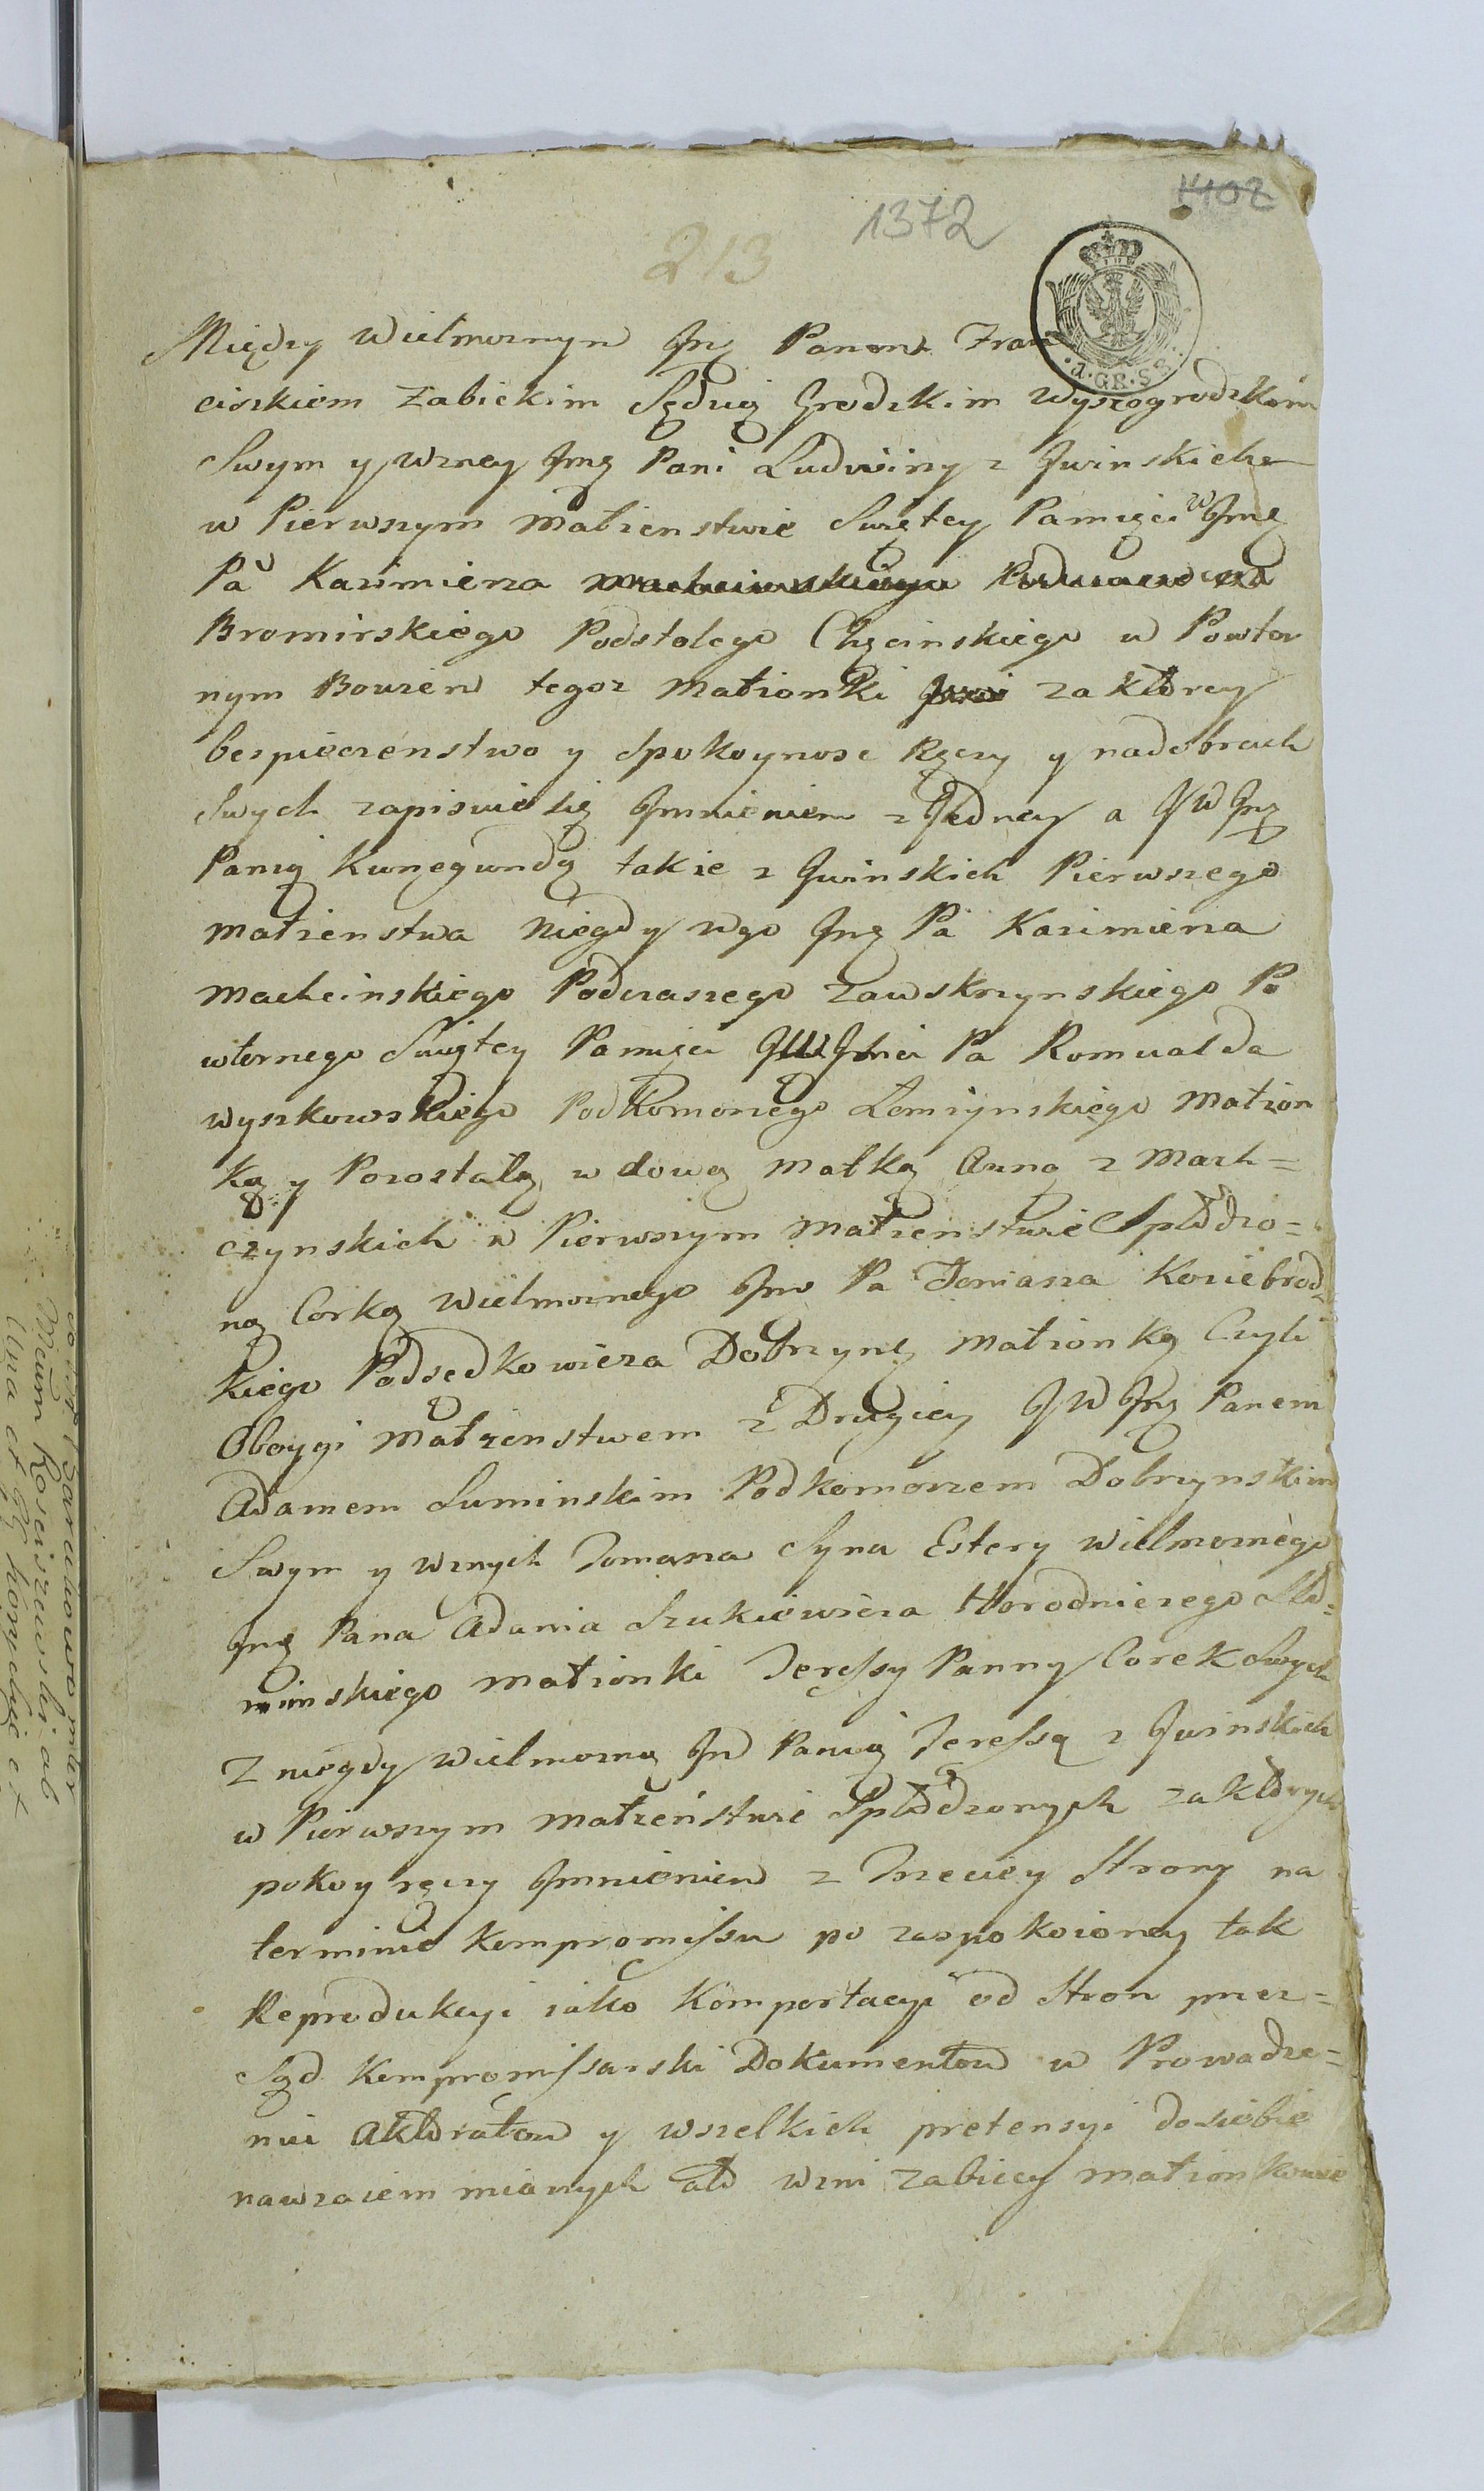 1402
1372
213
a. GR. S S.
Między Wielmoznym Jmę Panem Fran
ciszkiem Zabickim Sędzią Grodzkim Wyszogrodzkim
Swym y Wzney Jmę Pani Ludwiny z Jwinskich
w Pierwszym Małzenstwie Swiętey Pamięci W Jmę
Pa Kazimierza
Bromirskiego Podstolego Chęcinskiego w Powtor
nym Bowiem tegoz Małzonki za ktorey
bespieczenstwo y Spokoynosc Ręczy y na dobrach
Swych zapisuie się Jmnieniem z Jedney a JW Jmę
Panią Kunegundą takze z Jwinskich Pierwszego
Małzenstwa Niegdy Wgo Jmę Pa Kazimierza
Machcinskiego Podczaszego Zawskrzynskiego Po
wtornego Swiętey Pamięci JW Jmci Pa Romualda
Wyszkowskiego Podkomorzego Łomzynskiego Małzon
ką y Pozostałą wdową Matką Anną z Mach=
czynskich w Pierwszym Małzenstwie Spłodzo=
ną Corką Wielmoznego Jmc Pa Tomasza Koziebrodz
kiego Podsedkowicza Dobrzyn Małzonką Czyli
Oboygi Małzenstwem z Drugiey JW Jmę Panem
Adamem Suminskim Podkomorzem Dobrzynskim
Swym y Wznych Tomasza Syna Estery Wielmoznego
Jmę Pana Adama Szukiewicza Horodniczego Sło=
nimskiego Małzonki Teressy Panny Corek Swych
Z niegdy Wielmozną Jm Panią Teressą z Jwinskich
w Pierwszym Małzeństwie Spłodzonych za ktorych
pokoy ręczy Jmnieniem z Trzeciey Strony na
terminie Kompromissu po zaspokoioney tak
Reprodukcyi iako Komportacyi od Stron przez=
Sąd Kompromissarski Dokumentow w Prowadze=
niu Aktoratow y wszelkich pretensyi do siebie
nawzaiem mianych ato Wzni Zabiccy Małzonkowie